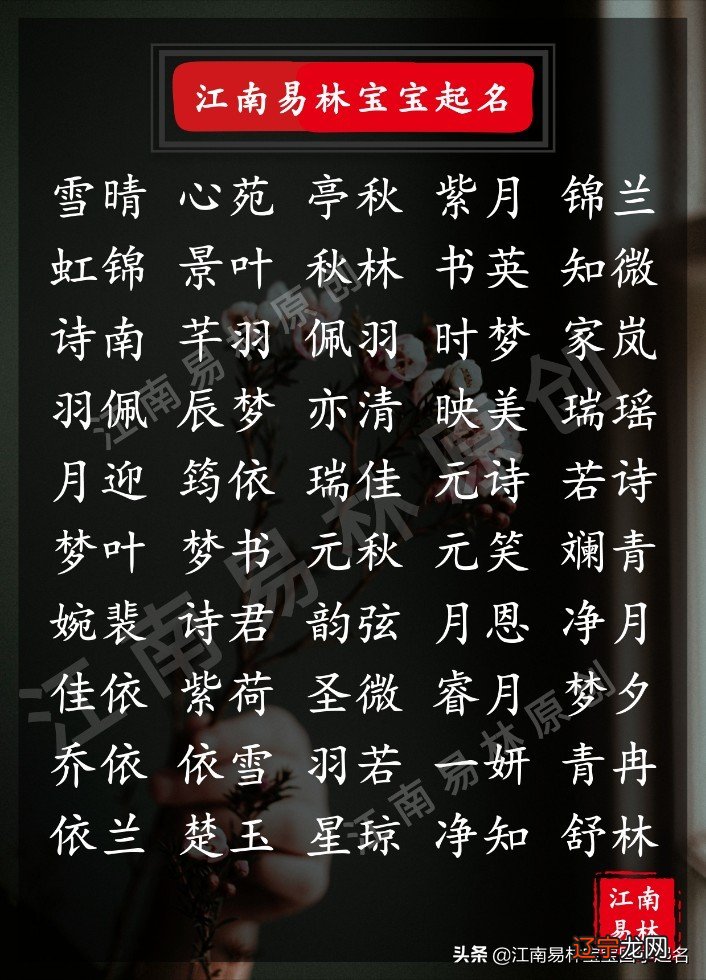 江南易林宝宝起名
雪晴 心苑 亭秋 紫月 锦兰
虹锦 景叶 秋林 书英 知微
诗南 芊羽 佩羽 时梦 家岚
羽佩 辰梦 亦清 映美 瑞瑶
月迎 筠依 瑞佳 元诗 若诗
梦叶 梦书 元秋 元笑 斓青
婉裴 诗君 韵弦 月恩 净月
佳依 紫荷 圣微 睿月 梦夕
乔依 依雪 羽若 一妍 青冉
依兰 楚玉 星琼 净知 舒林
江南易林原创
江南易林原创
江南易林原创
江南
易林
辽宁龙网
头条 @江南易林宝宝 起名